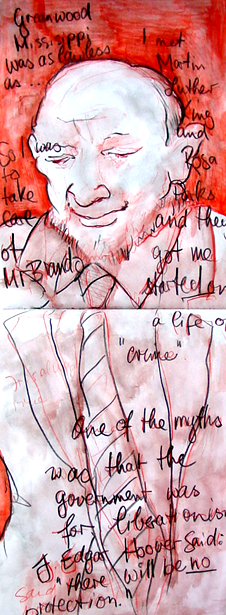 Greenwood
Mississippi
was as lawless
as ...
I met
Martin
Luther
King
and
Rosa
Parks
and they
got me
started on
So I was
to
take
care
of
Mr Brando
a life of
"crime".
One of the myths
was that the
government was
for liberationis
J. Edgar Hoover Said:
Said "there will be no
protection."